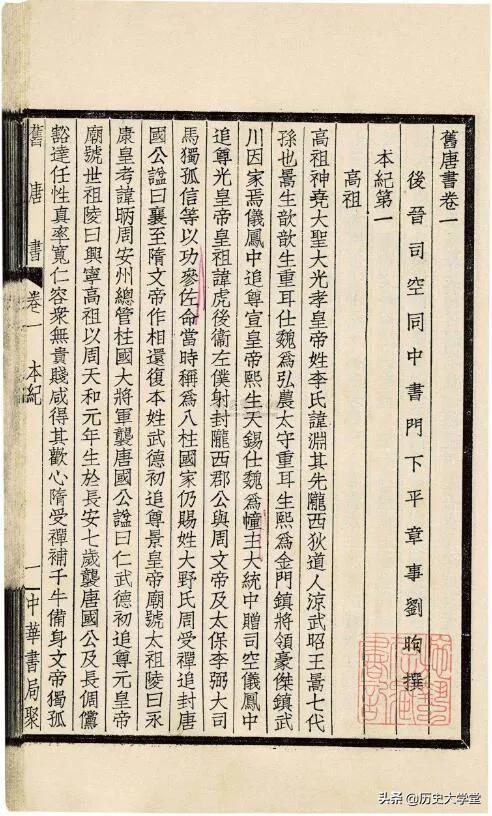 舊唐書卷一
後晉司空同中書門下平章事劉昫撰
本紀第一
高祖
高祖神堯大聖大光孝皇帝姓李氏諱淵其先隴西狄道人涼武昭王暠七代
孫也暠生歆歆生重耳仕魏為弘農太守重耳生熙為金門鎮將領豪傑鎮武
川因家焉儀鳳中追尊宣皇帝熙生天錫仕魏為幢主大統中贈司空儀鳳中
追尊光皇帝皇祖諱虎後衞左僕射封隴西郡公與周文帝及太保李弼大司
馬獨孤信等以功參佐命當時稱為八柱國家仍賜姓大野氏周受禪追封唐
國公諡曰襄至隋文帝作相還復本姓武德初追尊景皇帝廟號太祖陵曰永
康皇考諱昞周安州總管柱國大將軍襲唐國公諡曰仁武德初追尊元皇帝
廟號世祖陵曰興寧高祖以周天和元年生於長安七歲襲唐國公及長倜儻
豁達任性真率寬仁容衆無貴賤咸得其歡心隋受禪補千牛備身文帝獨孤
舊唐書 卷一 本紀 一 中華書局聚
头条 @历史大学堂